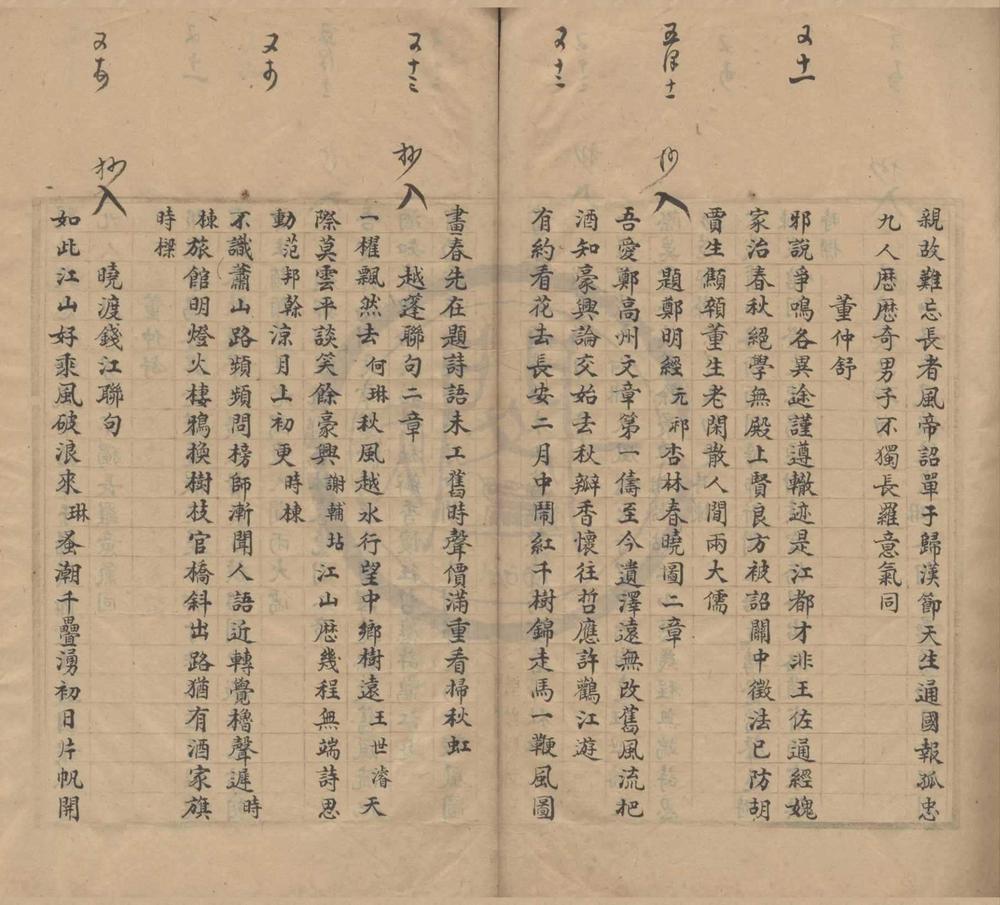 又十一
五月十一
又十二
抄
入
親故難忘長者風帝詔單于歸漢節天生通國報孤忠
九人歷歷奇男子不獨長羅意氣同
董仲舒
邪說爭鳴各異途謹遵轍迹是江都才非王佐通經媿
家治春秋絕學無殿上賢良方被詔關中徵法已防胡
賈生顦顇董生老閑散人閒兩大儒
題鄭明經元祁杏林春曉圖二章
吾愛鄭高州文章第一儔至今遺澤遠無改舊風流杷
酒知豪興論交始去秋瓣香懷往哲應許鸛江遊
有約看花去長安二月中鬧紅千樹錦走馬一鞭風圖
又十三
又
又
抄
入
抄
入
畫春先在題詩語未工舊時聲價滿重看掃秋虹
越蓬聯句二章
一櫂飄然去何琳秋風越水行望中鄉樹遠王世濬天
際莫雲平談笑餘豪興謝輔坫江山歷幾程無端詩思
動范邦榦涼月上初更時棟
不識蕭山路頻頻問榜師漸聞人語近轉覺櫓聲遲時
棟旅館明燈火棲鴉換樹枝官橋斜出路猶有酒家旗
時樑
曉渡錢江聯句
如此江山好乘風破浪來琳蚤潮千疊湧初日片帆開